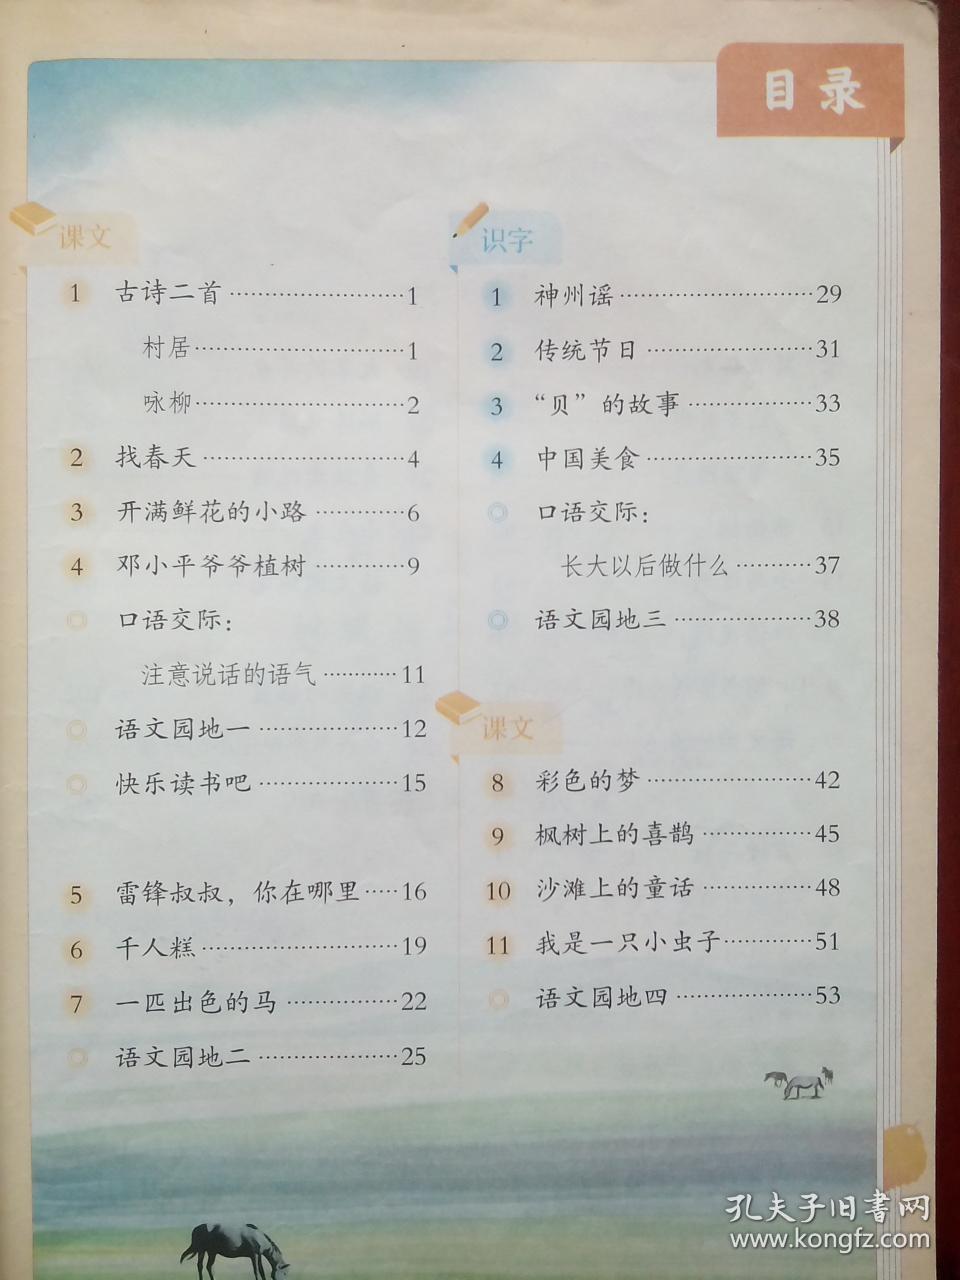 目录
课文
1 古诗二首························1
村居·····························1
咏柳·····························2
2 找春天····························4
3 开满鲜花的小路·············6
4 邓小平爷爷植树·············9
◎ 口语交际：
注意说话的语气············11
◎ 语文园地一····················12
◎ 快乐读书吧····················15
5 雷锋叔叔，你在哪里·····16
6 千人糕····························19
7 一匹出色的马················22
◎ 语文园地二····················25
识字
1 神州谣····························29
2 传统节日························31
3 “贝”的故事··················33
4 中国美食························35
◎ 口语交际：
长大以后做什么···········37
◎ 语文园地三····················38
课文
8 彩色的梦························42
9 枫树上的喜鹊················45
10 沙滩上的童话················48
11 我是一只小虫子·············51
◎ 语文园地四····················53
孔夫子旧书网
www.kongfz.com